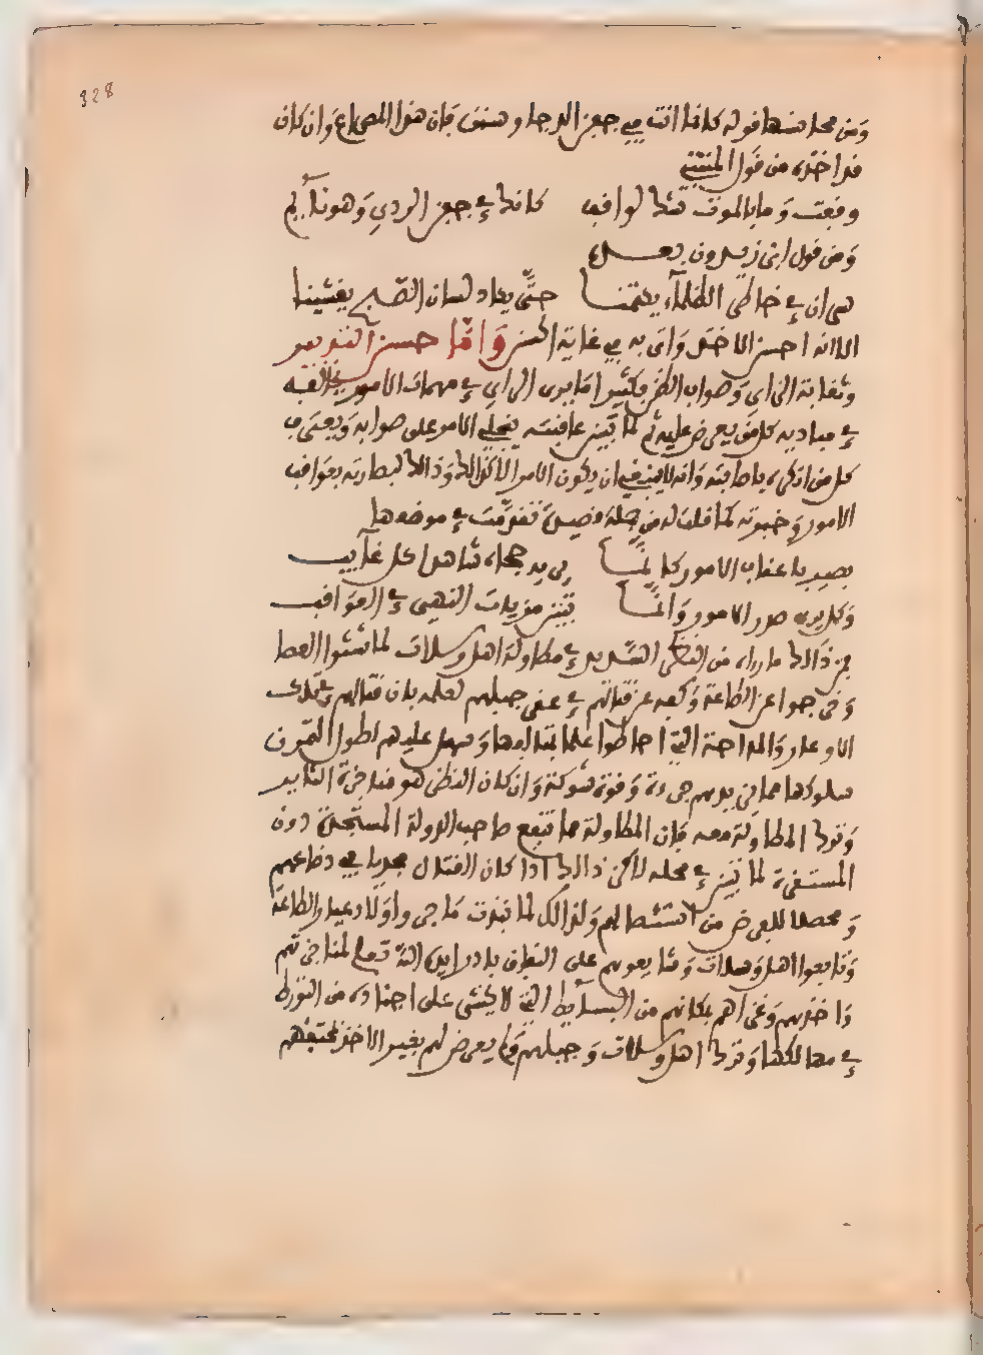 328
ومن محاسنها قوله كانما انت في جفن الدجا وسنن فان هذا المصراع وان كان
قد اخذه من قول المتنبي
وقفت وما بالموت شك لواقف كانك في جفن الردي وهو نايم
ومن قول ابن زيدون
سران في خاطر الظلماء يكتمنا حتى يكاد لسان الصبح يفشينا
الا انه احسن الاخذ واتى به في غاية الحسن واما حسن التدبير
وثقابة الراي وصواب النظر فكثيرا ما يرى الراي في مهمات الامور يخالفه
في مباديه كل من يعرض عليه ثم لما تتبين عاقبته ينجلي الامر على صوابه ويعترف
كل من انكره باصابته وانه لا ينبغي ان يكون الامر الا كذالك وذالك لبصارته بعواقب
الامور وخبرته كما قلت له من جملة قصيدة تقدمت في موضعها
بصير باعقاب الامور كانما يرى بحجاه شاهدا كل غايب
وكل يرى صدر الامور وانما تبين مزيات النهى في العواقب
فمن ذالك ما رءاه من النظر السديد في مطاولة اهل وسلات لما شقوا العصا
وخرجوا عن الطاعة وكفه عن قتالهم في عقر جبلهم لعلمه بان قتالهم في تلك
الاوعار والمداحة التي احاطوا علما بمسالكها وسهل عليهم لطول التمرن
سلوكها مما يزيدهم جرءة وقوة شوكة وان كان النظر هو مناجزة الثاير
وترك المطاولة معه فان المطاولة مما تنفع صاحب الدولة المستجدة دون
المستقرة لما تبين في محله لاكن ذالك اذا كان القتال مجديا في دفاعهم
ومحصلا للغرض من استئصالهم ولذالك لما تبدت ما جر واولاد عيار الطاعة
وتابعوا اهل وسلات وشايعوهم على النفاق بادر ايده الله تعالى لمناجزتهم
واخذهم وغزاهم بمكانهم من البسايط التي لا يخشى على اجناده من التورط
في مهالكها وترك اهل وسلات وجبلهم ولم يعرض لهم بغير الاخذ بمخنقهم